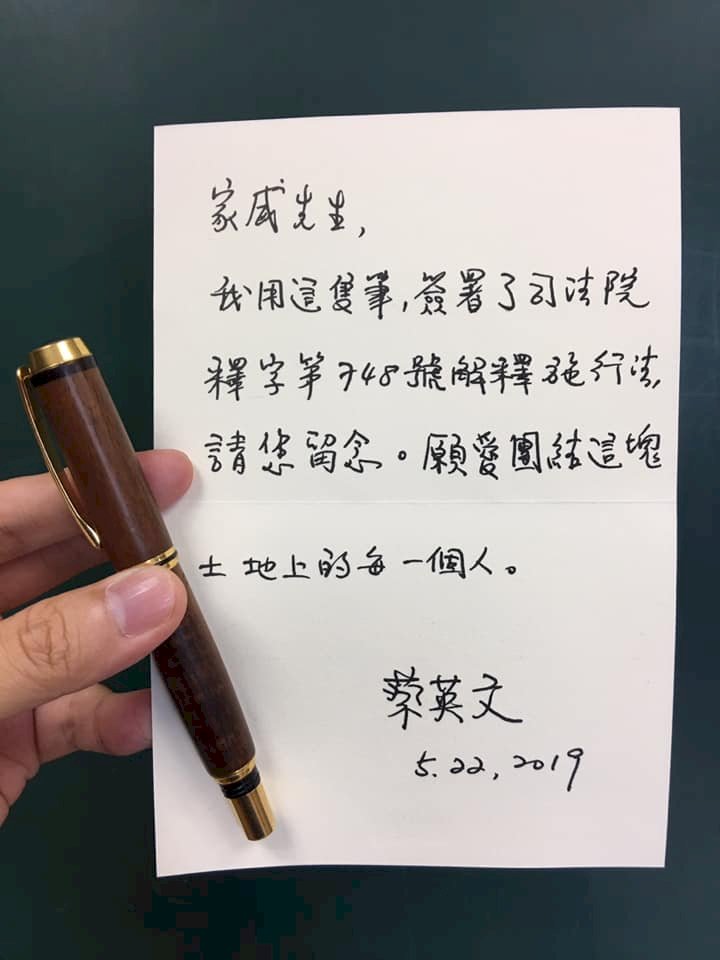 家威先生,
我用這隻筆,簽署了司法院
釋字第748號解釋施行法,
請您留念。願愛團結這塊
土地上的每一個人。
蔡英文
5.22,2019